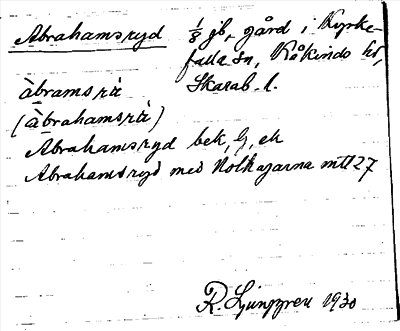 Abrahamsryd 1/8 jb, gård i Kyrke-
falla sn, Kåkinds hd,
Skarab. l.
àbramsrà
(àbrahamsrà)
Abrahamsryd bek, G, ek
Abrahamsryd med Kolkagarna mtl 27
R. Ljunggren 1930